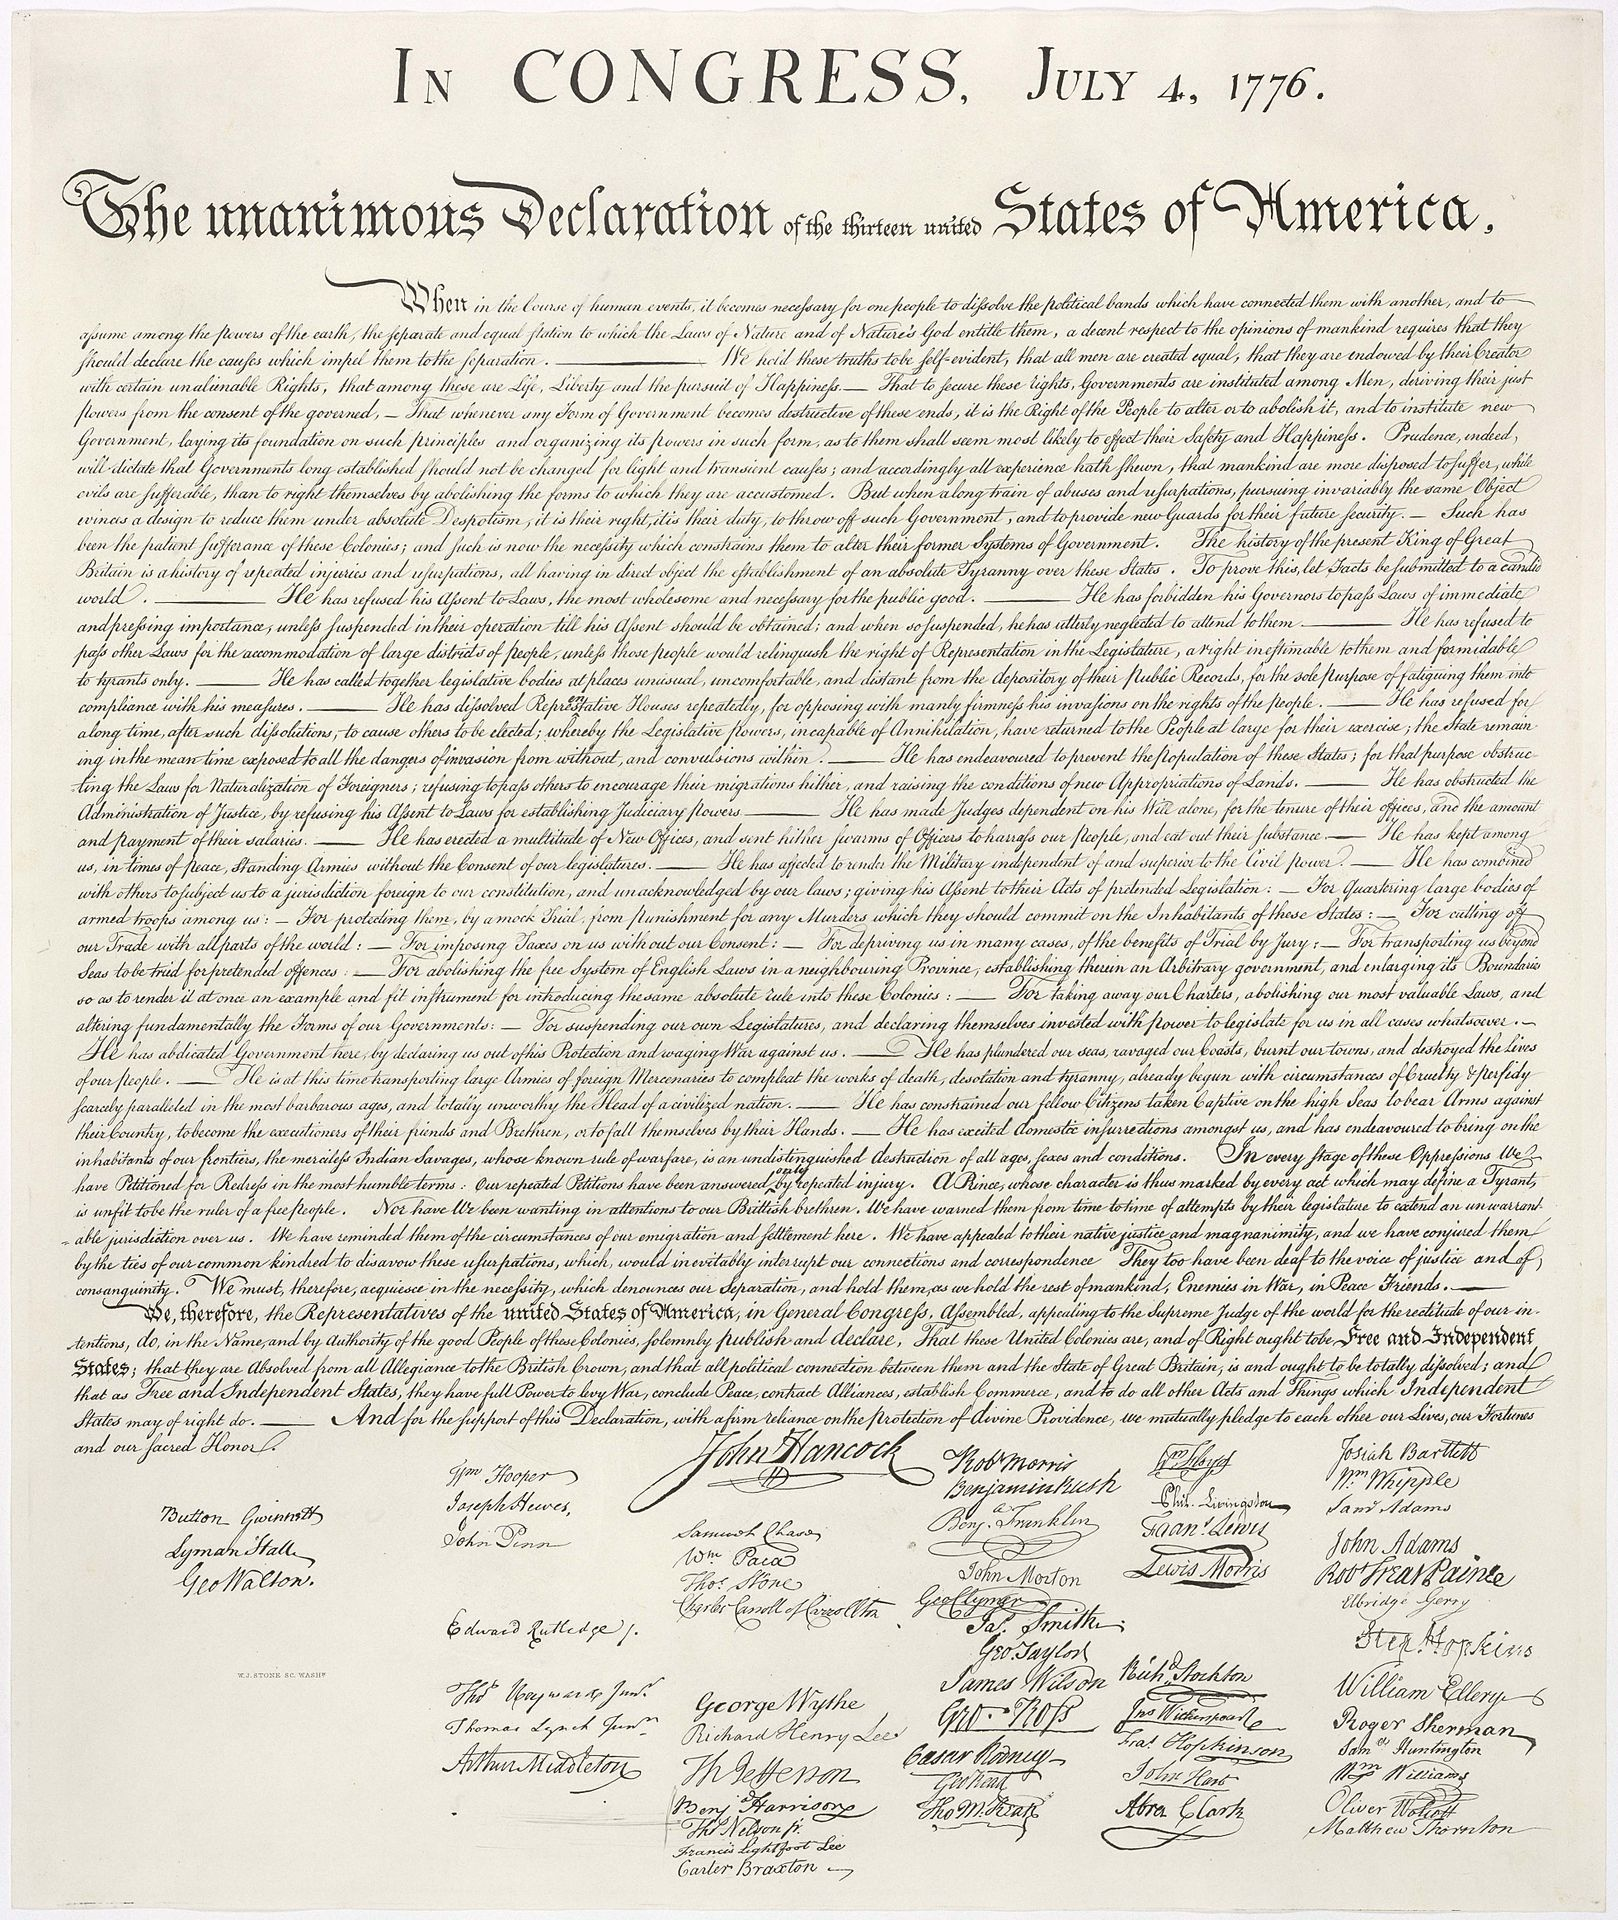 In CONGRESS, July 4, 1776.
The unanimous Declaration of the thirteen united States of America,
When in the Course of human events, it becomes necessary for one people to dissolve the political bands which have connected them with another, and to
assume among the powers of the earth, the separate and equal station to which the Laws of Nature and of Nature's God entitle them, a decent respect to the opinions of mankind requires that they
should declare the causes which impel them to the separation. ——— We hold these truths to be self-evident, that all men are created equal, that they are endowed by their Creator
with certain unalienable Rights, that among these are Life, Liberty and the pursuit of Happiness. — That to secure these rights, Governments are instituted among Men, deriving their just
powers from the consent of the governed, — That whenever any Form of Government becomes destructive of these ends, it is the Right of the People to alter or to abolish it, and to institute new
Government, laying its foundation on such principles and organizing its powers in such form, as to them shall seem most likely to effect their Safety and Happiness. Prudence, indeed,
will dictate that Governments long established should not be changed for light and transient causes; and accordingly all experience hath shewn, that mankind are more disposed to suffer, while
evils are sufferable, than to right themselves by abolishing the forms to which they are accustomed. But when a long train of abuses and usurpations, pursuing invariably the same Object
evinces a design to reduce them under absolute Despotism, it is their right, it is their duty, to throw off such Government, and to provide new Guards for their future security. — Such has
been the patient sufferance of these Colonies; and such is now the necessity which constrains them to alter their former Systems of Government. The history of the present King of Great
Britain is a history of repeated injuries and usurpations, all having in direct object the establishment of an absolute Tyranny over these States. To prove this, let Facts be submitted to a candid
world. ——— He has refused his Assent to Laws, the most wholesome and necessary for the public good. ——— He has forbidden his Governors to pass Laws of immediate
and pressing importance, unless suspended in their operation till his Assent should be obtained; and when so suspended, he has utterly neglected to attend to them. ——— He has refused to
pass other Laws for the accommodation of large districts of people, unless those people would relinquish the right of Representation in the Legislature, a right inestimable to them and formidable
to tyrants only. ——— He has called together legislative bodies at places unusual, uncomfortable, and distant from the depository of their public Records, for the sole purpose of fatiguing them into
compliance with his measures. ——— He has dissolved Representative Houses repeatedly, for opposing with manly firmness his invasions on the rights of the people. ——— He has refused for
a long time, after such dissolutions, to cause others to be elected; whereby the Legislative powers, incapable of Annihilation, have returned to the People at large for their exercise; the State remain
ing in the mean time exposed to all the dangers of invasion from without, and convulsions within. ——— He has endeavoured to prevent the population of these States; for that purpose obstruc
ting the Laws for Naturalization of Foreigners; refusing to pass others to encourage their migrations hither, and raising the conditions of new Appropriations of Lands. ——— He has obstructed the
Administration of Justice, by refusing his Assent to Laws for establishing Judiciary powers. ——— He has made Judges dependent on his Will alone, for the tenure of their offices, and the amount
and payment of their salaries. ——— He has erected a multitude of New Offices, and sent hither swarms of Officers to harrass our people, and eat out their substance. — He has kept among
us, in times of peace, Standing Armies without the Consent of our legislatures. ——— He has affected to render the Military independent of and superior to the Civil power. — He has combined
with others to subject us to a jurisdiction foreign to our constitution, and unacknowledged by our laws; giving his Assent to their Acts of pretended Legislation: — For Quartering large bodies of
armed troops among us: — For protecting them, by a mock Trial, from punishment for any Murders which they should commit on the Inhabitants of these States: — For cutting off
our Trade with all parts of the world: — For imposing Taxes on us without our Consent: — For depriving us in many cases, of the benefits of Trial by Jury; — For transporting us beyond
Seas to be tried for pretended offences: — For abolishing the free System of English Laws in a neighbouring Province, establishing therein an Arbitrary government, and enlarging its Boundaries
so as to render it at once an example and fit instrument for introducing the same absolute rule into these Colonies: — For taking away our Charters, abolishing our most valuable Laws, and
altering fundamentally the Forms of our Governments: — For suspending our own Legislatures, and declaring themselves invested with power to legislate for us in all cases whatsoever. —
He has abdicated Government here, by declaring us out of his Protection and waging War against us. — He has plundered our seas, ravaged our Coasts, burnt our towns, and destroyed the Lives
of our people. — He is at this time transporting large Armies of foreign Mercenaries to compleat the works of death, desolation and tyranny, already begun with circumstances of Cruelty & perfidy
scarcely paralleled in the most barbarous ages, and totally unworthy the Head of a civilized nation. ——— He has constrained our fellow Citizens taken Captive on the high Seas to bear Arms against
their Country, to become the executioners of their friends and Brethren, or to fall themselves by their Hands. — He has excited domestic insurrections amongst us, and has endeavoured to bring on the
inhabitants of our frontiers, the merciless Indian Savages, whose known rule of warfare, is an undistinguished destruction of all ages, sexes and conditions. In every stage of these Oppressions We
have Petitioned for Redress in the most humble terms: Our repeated Petitions have been answered only by repeated injury. A Prince, whose character is thus marked by every act which may define a Tyrant,
is unfit to be the ruler of a free people. Nor have We been wanting in attentions to our Brittish brethren. We have warned them from time to time of attempts by their legislature to extend an unwarrant-
able jurisdiction over us. We have reminded them of the circumstances of our emigration and settlement here. We have appealed to their native justice and magnanimity, and we have conjured them
by the ties of our common kindred to disavow these usurpations, which, would inevitably interrupt our connections and correspondence They too have been deaf to the voice of justice and of
consanguinity. We must, therefore, acquiesce in the necessity, which denounces our Separation, and hold them, as we hold the rest of mankind, Enemies in War, in Peace Friends. —
We, therefore, the Representatives of the united States of America, in General Congress, Assembled, appealing to the Supreme Judge of the world for the rectitude of our in-
tentions, do, in the Name, and by Authority of the good People of these Colonies, solemnly publish and declare, That these United Colonies are, and of Right ought to be Free and Independent
States; that they are Absolved from all Allegiance to the British Crown, and that all political connection between them and the State of Great Britain, is and ought to be totally dissolved; and
that as Free and Independent States, they have full Power to levy War, conclude Peace, contract Alliances, establish Commerce, and to do all other Acts and Things which Independent
States may of right do. ——— And for the support of this Declaration, with a firm reliance on the protection of divine Providence, we mutually pledge to each other our Lives, our Fortunes
and our sacred Honor.
Button Gwinnett
Lyman Hall
Geo Walton.
W. J. STONE SC. WASHN
Wm Hooper
Joseph Hewes,
John Penn
Edward Rutledge /.
Thos Heyward Junr.
Thomas Lynch Junr.
Arthur Middleton
John Hancock
Samuel Chase
Wm Paca
Thos Stone
Charles Carroll of Carrollton
George Wythe
Richard Henry Lee
Th Jefferson
Benja Harrison
Thos Nelson jr.
Francis Lightfoot Lee
Carter Braxton
Robt Morris
Benjamin Rush
Benja. Franklin
John Morton
Geo Clymer
Jas. Smith
Geo. Taylor
James Wilson
Geo. Ross
Caesar Rodney
Geo Read
Tho M:Kean
Wm Floyd
Phil. Livingston
Frans. Lewis
Lewis Morris
Richd. Stockton
Jno Witherspoon
Fras. Hopkinson
John Hart
Abra Clark
Josiah Bartlett
Wm Whipple
Saml Adams
John Adams
Robt Treat Paine
Elbridge Gerry
Step. Hopkins
William Ellery
Roger Sherman
Samel Huntington
Wm Williams
Oliver Wolcott
Matthew Thornton